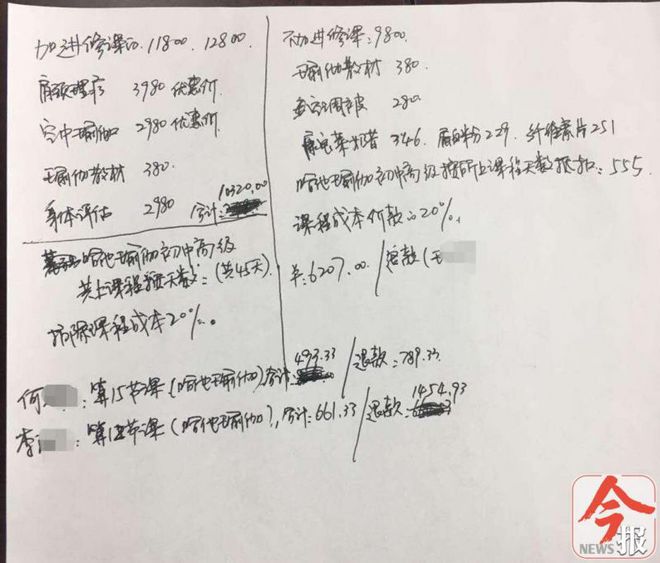 加进修课:11800. 12800.
肩颈理疗 3980 优惠价.
空中瑜伽 2980 优惠价.
瑜伽教材 380.
身体评估 2980 合计: 10320.00
哈他瑜伽初中高级
共上课程天数: (共45天)
扣除课程成本20%.
不加进修课:9800.
瑜伽教材 380.
280
346. 蛋白粉229. 纤维素片251
哈他瑜伽初中高级按所上课程天数抵扣: 555.
课程成本价款的20%.
¥:6207.00 / 退款(王
何 : 算15节课(哈他瑜伽)合计: 493.33 / 退款: 789.33
李 : 算12节课(哈他瑜伽),合计: 661.33 / 退款: 1454.93
今报
NEWS